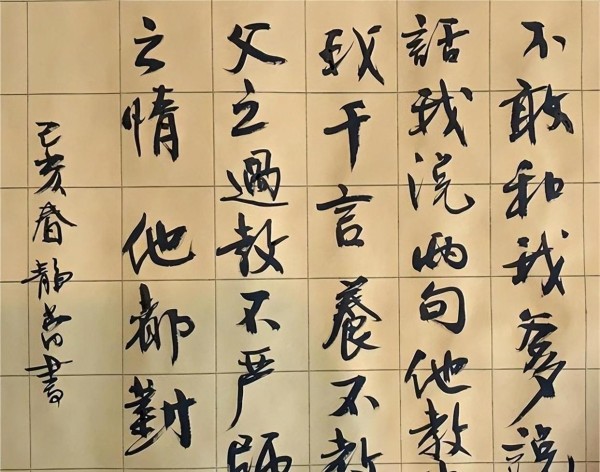 不敢和我爹説
話我说两句他教
我千言養不教
父之過教不严師
之情 他都對
己亥春靜書